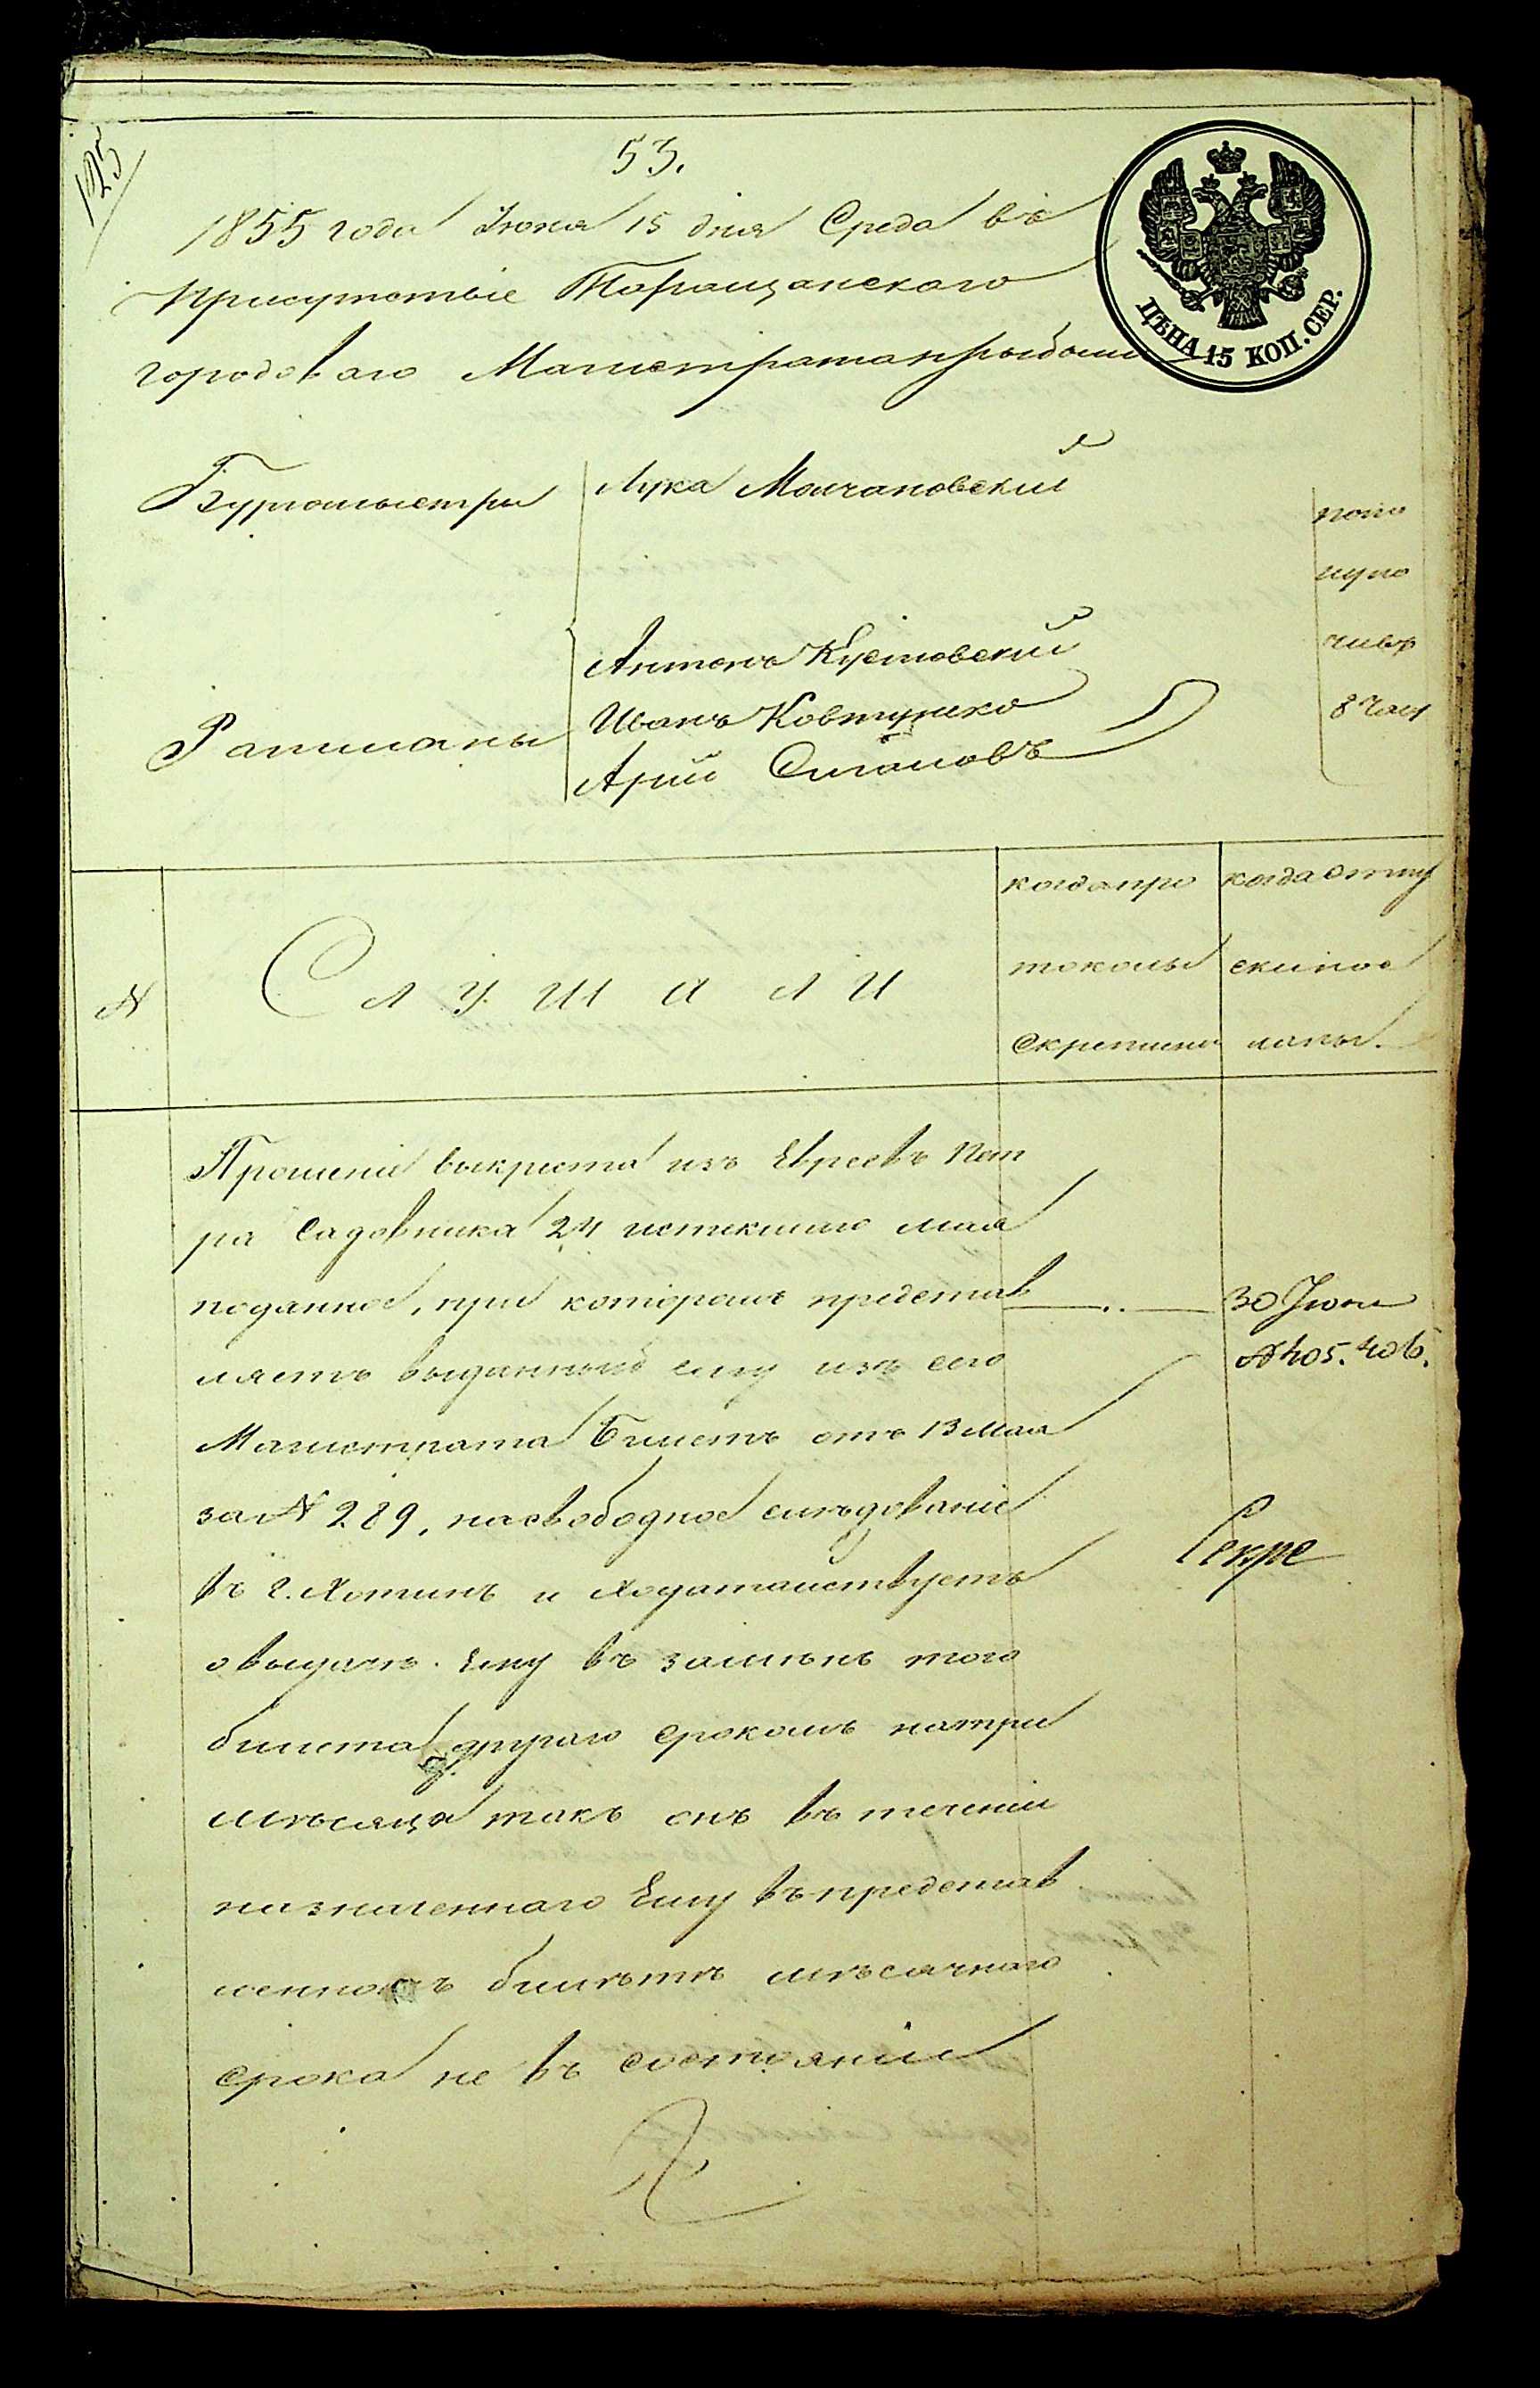 125
53.
1855 года Іюня 15 дня Среда въ
присутствіе Таращанскаго
городоваго Магистрата прибыли
ЦѢНА 15 КОП. СЕР.
Бургомистры
Лука Молчановскій
Антонъ Кустовскій
Иванъ Ковтуненко
Ратманы
Арій Сигаловъ
по по
луно
чивъ
8 часу
N
Слушали
когда про
токолы
скреплены
когда отпу
ски пос
ланы.
Прошеніе выкреста изъ Евреевъ Пет
ра Садовника 24 истекшаго мая
поданное, при которомъ представ
ляетъ выданный ему изъ сего
Магистрата Билетъ отъ 13 Мая
за N 289, на свободное слѣдованіе
въ г. Хотинъ и ходатайствуетъ
о выдачѣ Ему въ замѣнъ того
билета другаго срокомъ на три
мѣсяца такъ онъ въ теченіи
назначеннаго Ему въ представ
ленномъ билѣтѣ мѣсячнаго
срока не въ состояніи
30 Іюня
N 405. 406.
Секре